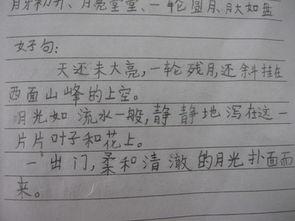 月牙初升、月亮堂堂、一轮圆月、月大如盘
好句:
天还未大亮,一轮残月还斜挂在
西面山峰的上空。
月光如流水一般,静静地泻在这一
片片叶子和花上。
一出门,柔和清澈的月光扑面而
来。